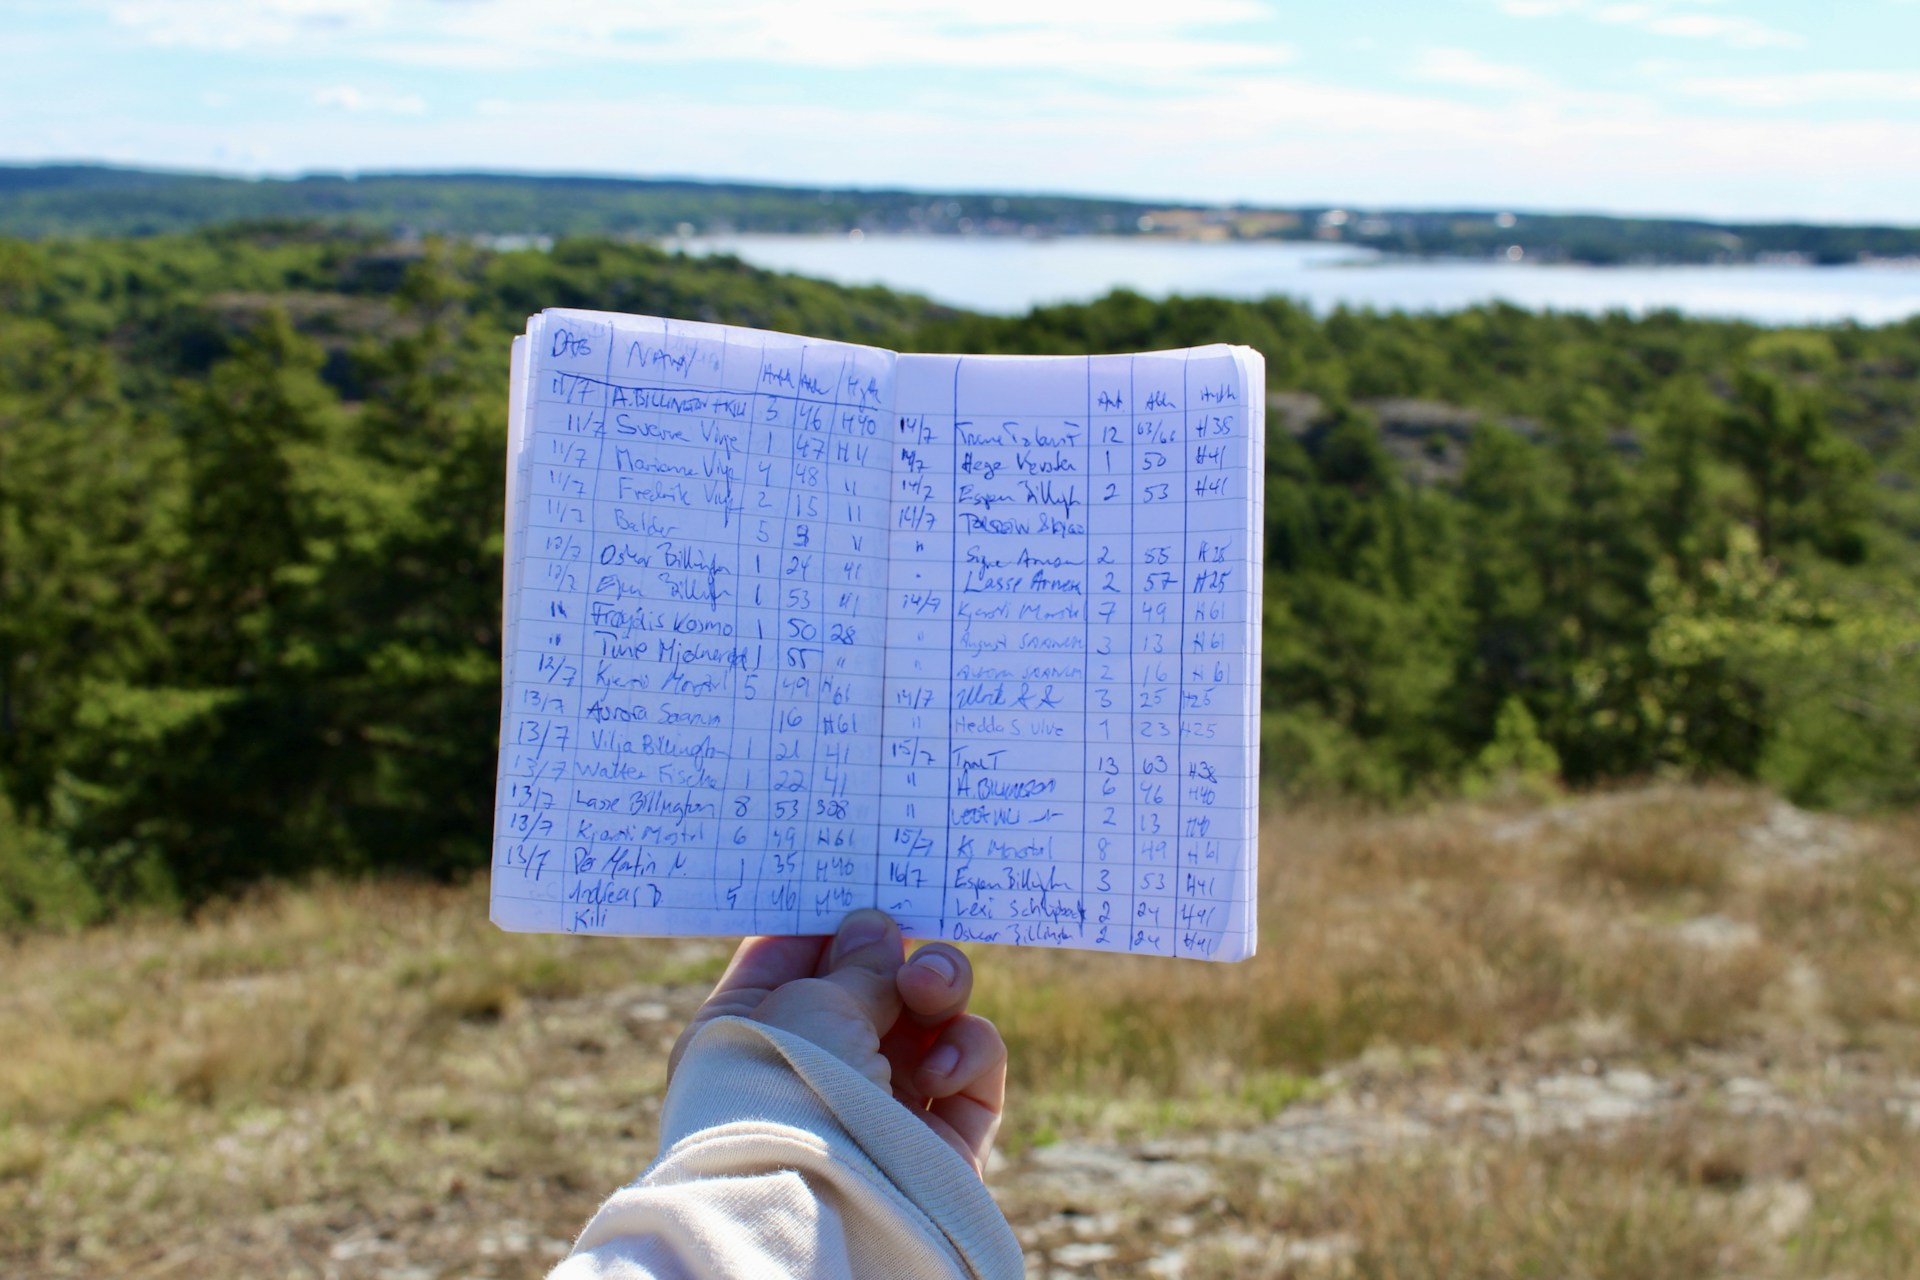 Dato Navn Ant Alder Hytte
11/7 A. BILLINGTON + KILI 3 46 H40
11/7 Sverre Vive 1 47 H41
11/7 Marianne Vive 4 48 11
11/7 Fredrik Vive 2 15 11
11/7 Balder 5 11
12/7 Oskar Billington 1 24 41
12/7 Espen Billington 1 53 41
" Frøydis Kosmo 1 50 28
" Tune 1 55 "
12/7 Kjersti Mørstøl 5 49 H61
13/7 Aurora Saanum 16 H61
13/7 Vilja Billington 1 21 41
13/7 Walter Fische 1 22 41
13/7 Lasse Billington 8 53
13/7 Kjersti 6 49 H61
13/7 Per Martin N. 1 35 H40
Andreas B 5 46 H40
Kili
Ant Alder Hytte
14/7 12 63/66 H38
14/7 Hege 1 50 H41
14/7 Espen Billington 2 53 H41
14/7
" Signe 2 55 H25
" Lasse 2 57 H25
14/7 Kjersti 7 49 H61
" August SAANUM 3 13 H61
" AURORA SAANUM 2 16 H61
14/7 3 25 H25
" Hedda S Vive 1 23 H25
15/7 Tone T 13 63 H38
" A. BILLINGTON 6 46 H40
" 2 13 H40
15/7 Kj 8 49 H61
16/7 Espen Billington 3 53 H41
Lexi 2 24 H41
Oskar Billington 2 24 H41